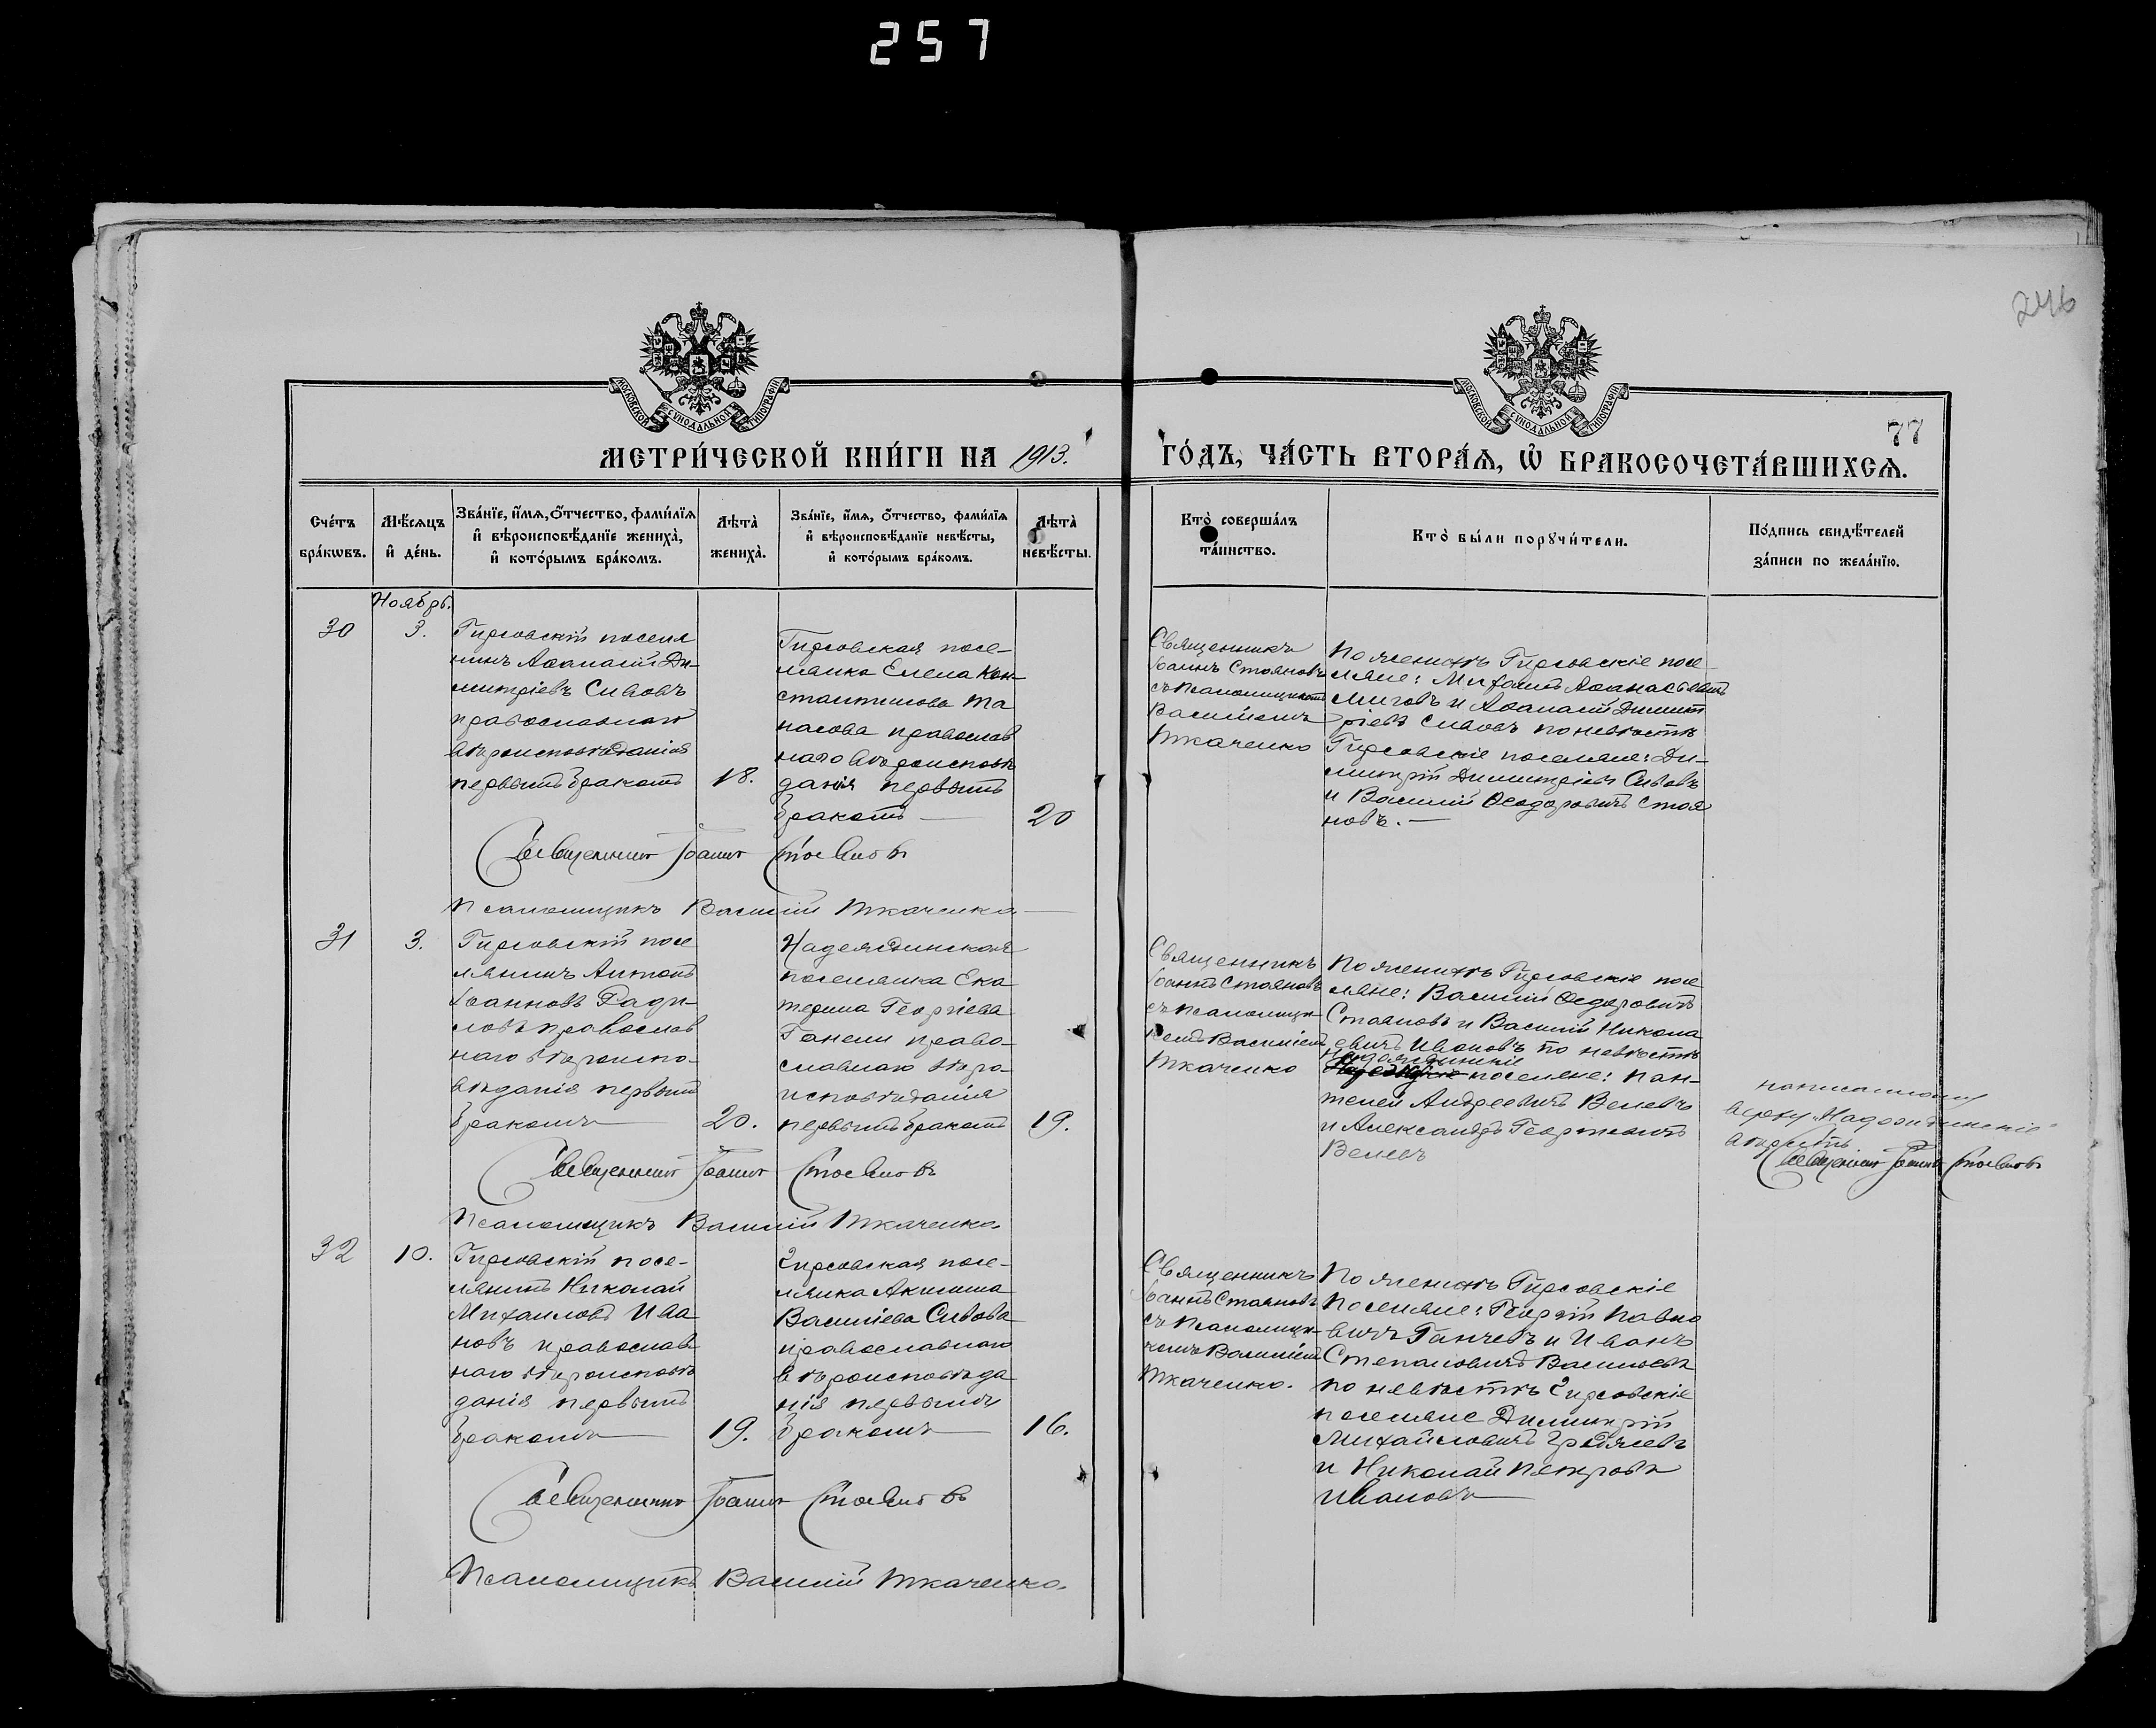 257
246
77
МОСКОВСКОЙ СУНОДАЛЬНОЙ ТИПОГРАФІИ
МОСКОВСКОЙ СУНОДАЛЬНОЙ ТИПОГРАФІИ
МЕТРИ́ЧЕСКОЙ КНИ́ГИ НА 1913.
ГО́ДЪ, ЧА́СТЬ ВТОРА́Я, Ѡ БРАКОСОЧЕТА́ВШИХСЯ.
Сче́тъ бра́кѡвъ.
Мѣ́сяцъ и҆ де́нь.
Зва́нїе, и҆́мя, ѻ҆́тчество, фами́лїя
и҆ вѣроисповѣ́данїе жениха̀,
и҆ кото́рымъ бра́комъ.
Лѣта̀ жениха̀.
Зва́нїе, и҆́мя, ѻ҆́тчество, фами́лїя
и҆ вѣроисповѣ́данїе невѣ́сты,
и҆ кото́рымъ бра́комъ.
Лѣта̀ невѣ́сты.
Кто̀ соверша́лъ та́инство.
Кто̀ бы́ли порꙋчи́тели.
По́дпись свидѣ́телей
за́писи по жела́нїю.
Ноябрь.
30
3.
Гирсовскій поселя
нинъ Аѳанасій Ди-
митріевъ Сивовъ
православнаго
вѣроисповѣданія
первымъ бракомъ
18.
Гирсовская посе-
лянка Елена Кон-
стантинова Та
насова православ
наго вѣроисповѣ
данія первымъ
бракомъ
20
Священникъ
Іоаннъ Стояновъ
съ псаломщикомъ
Василіемъ
Ткаченко
По женихѣ Гирсовскіе посе-
ляне: Михаилъ Аѳанасьевичъ
и Аѳанасій Димит
ріевъ Сивовъ по невѣстѣ
Гирсовскіе поселяне: Ди-
митрій Димитріевъ Сивовъ
и Василій Ѳеодоровичъ Стоя
новъ.
Священникъ Іоаннъ Стояновъ
Псаломщикъ Василій Ткаченко
31
3.
Гирсовскій посе
лянинъ Антонъ
Іоанновъ Ради-
ловъ православ
наго вѣроиспо-
вѣданія первымъ
бракомъ
20.
Надеждинская
поселянка Ека
терина Георгіева
Ганели право-
славнаго вѣро-
исповѣданія
первымъ бракомъ
19.
Священникъ
Іоаннъ Стояновъ
съ псаломщи-
комъ Василіемъ
Ткаченко
По женихѣ Гирсовскіе посе
ляне: Василій Ѳедоровичъ
Стояновъ и Василій Никола
евичъ Ивановъ по невѣстѣ
Надеждинскіе
поселяне: Пан-
телей Андреевичъ Велевъ
и Александръ Георгіевичъ
Велевъ
написанному
вверху „Надеждинскіе"
вѣрить
Священникъ Іоаннъ Стояновъ
Священникъ Іоаннъ Стояновъ
Псаломщикъ Василій Ткаченко.
32
10.
Гирсовскій посе-
лянинъ Николай
Михаиловъ Ива
новъ православ
наго вѣроисповѣ
данія первымъ
бракомъ
19.
Гирсовская посе-
лянка Акилина
Василіева Сивова
православнаго
вѣроисповѣда
нія первымъ
бракомъ
16.
Священникъ
Іоаннъ Стояновъ
съ псаломщи-
комъ Василіемъ
Ткаченко.
По женихѣ Гирсовскіе
поселяне: Георгій Павло
вичъ Ганчевъ и Иванъ
Степановичъ Васильевъ
по невѣстѣ Гирсовскіе
поселяне Димитрій
Михайловичъ
и Николай Петровъ
Ивановъ
Священникъ Іоаннъ Стояновъ
Псаломщикъ Василій Ткаченко.